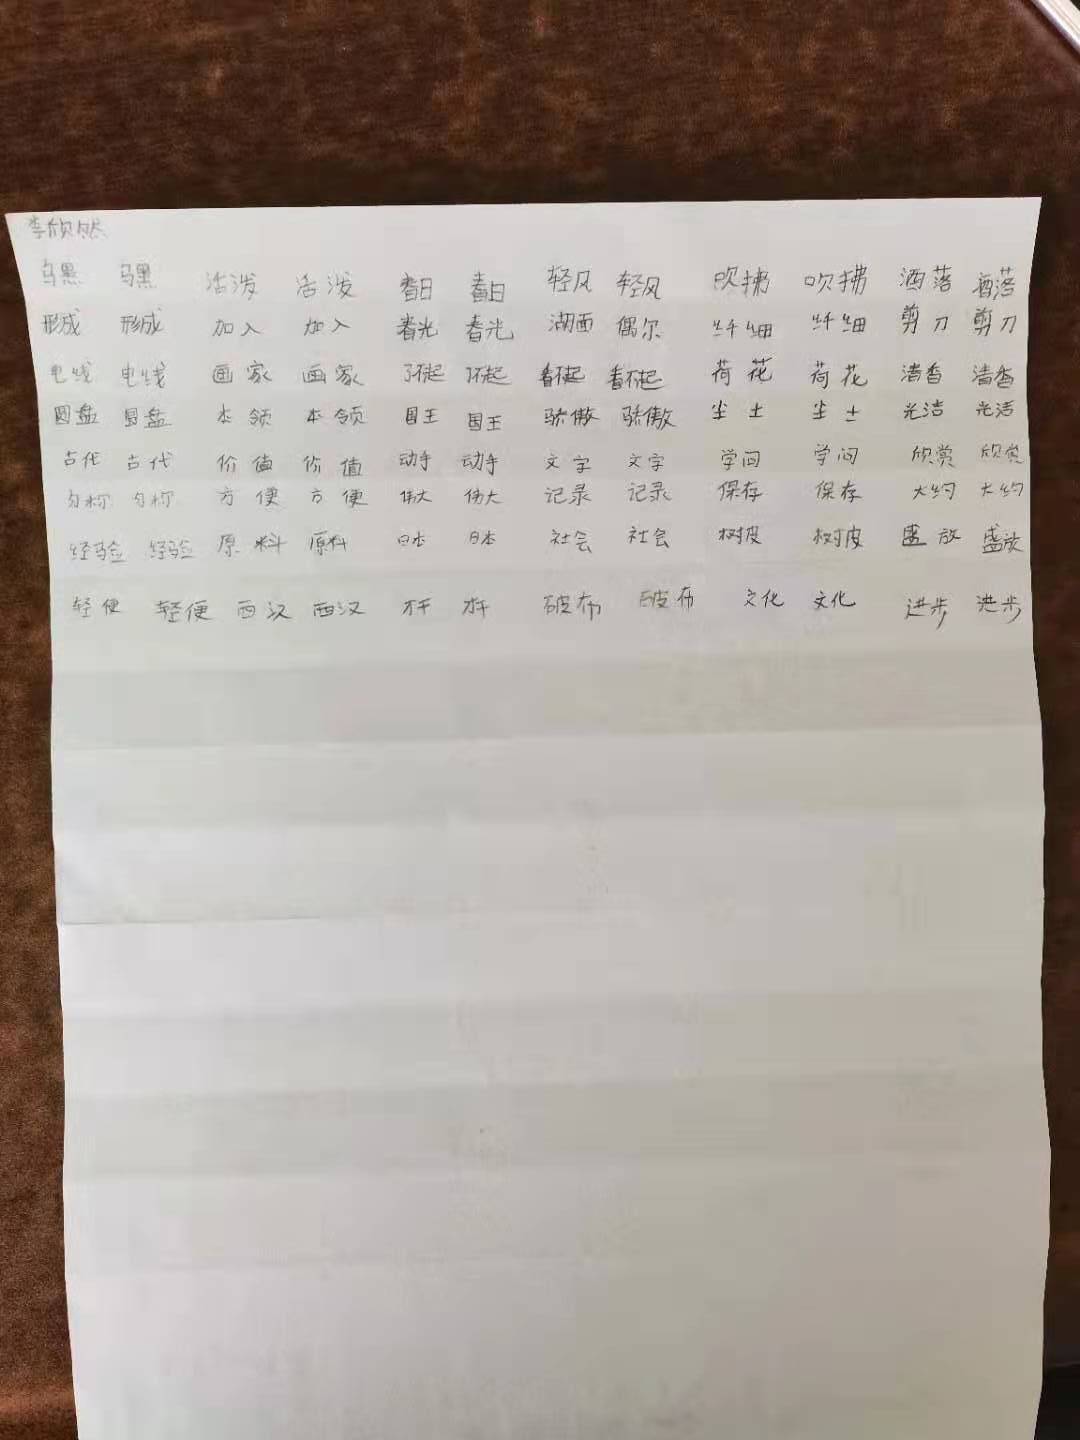 李欣然
乌黑 乌黑 活泼 活泼 春日 春日 轻风 轻风 吹拂 吹拂 洒落 洒落
形成 形成 加入 加入 春光 春光 湖面 偶尔 纤细 纤细 剪刀 剪刀
电线 电线 画家 画家 了不起 了不起 看不起 看不起 荷花 荷花 清香 清香
圆盘 圆盘 本领 本领 国王 国王 骄傲 骄傲 尘土 尘土 光洁 光洁
古代 古代 价值 价值 动手 动手 文字 文字 学问 学问 欣赏 欣赏
匀称 匀称 方便 方便 伟大 伟大 记录 记录 保存 保存 大约 大约
经验 经验 原料 原料 日本 日本 社会 社会 树皮 树皮 盛放 盛放
轻便 轻便 西汉 西汉 破布 破布 文化 文化 进步 进步